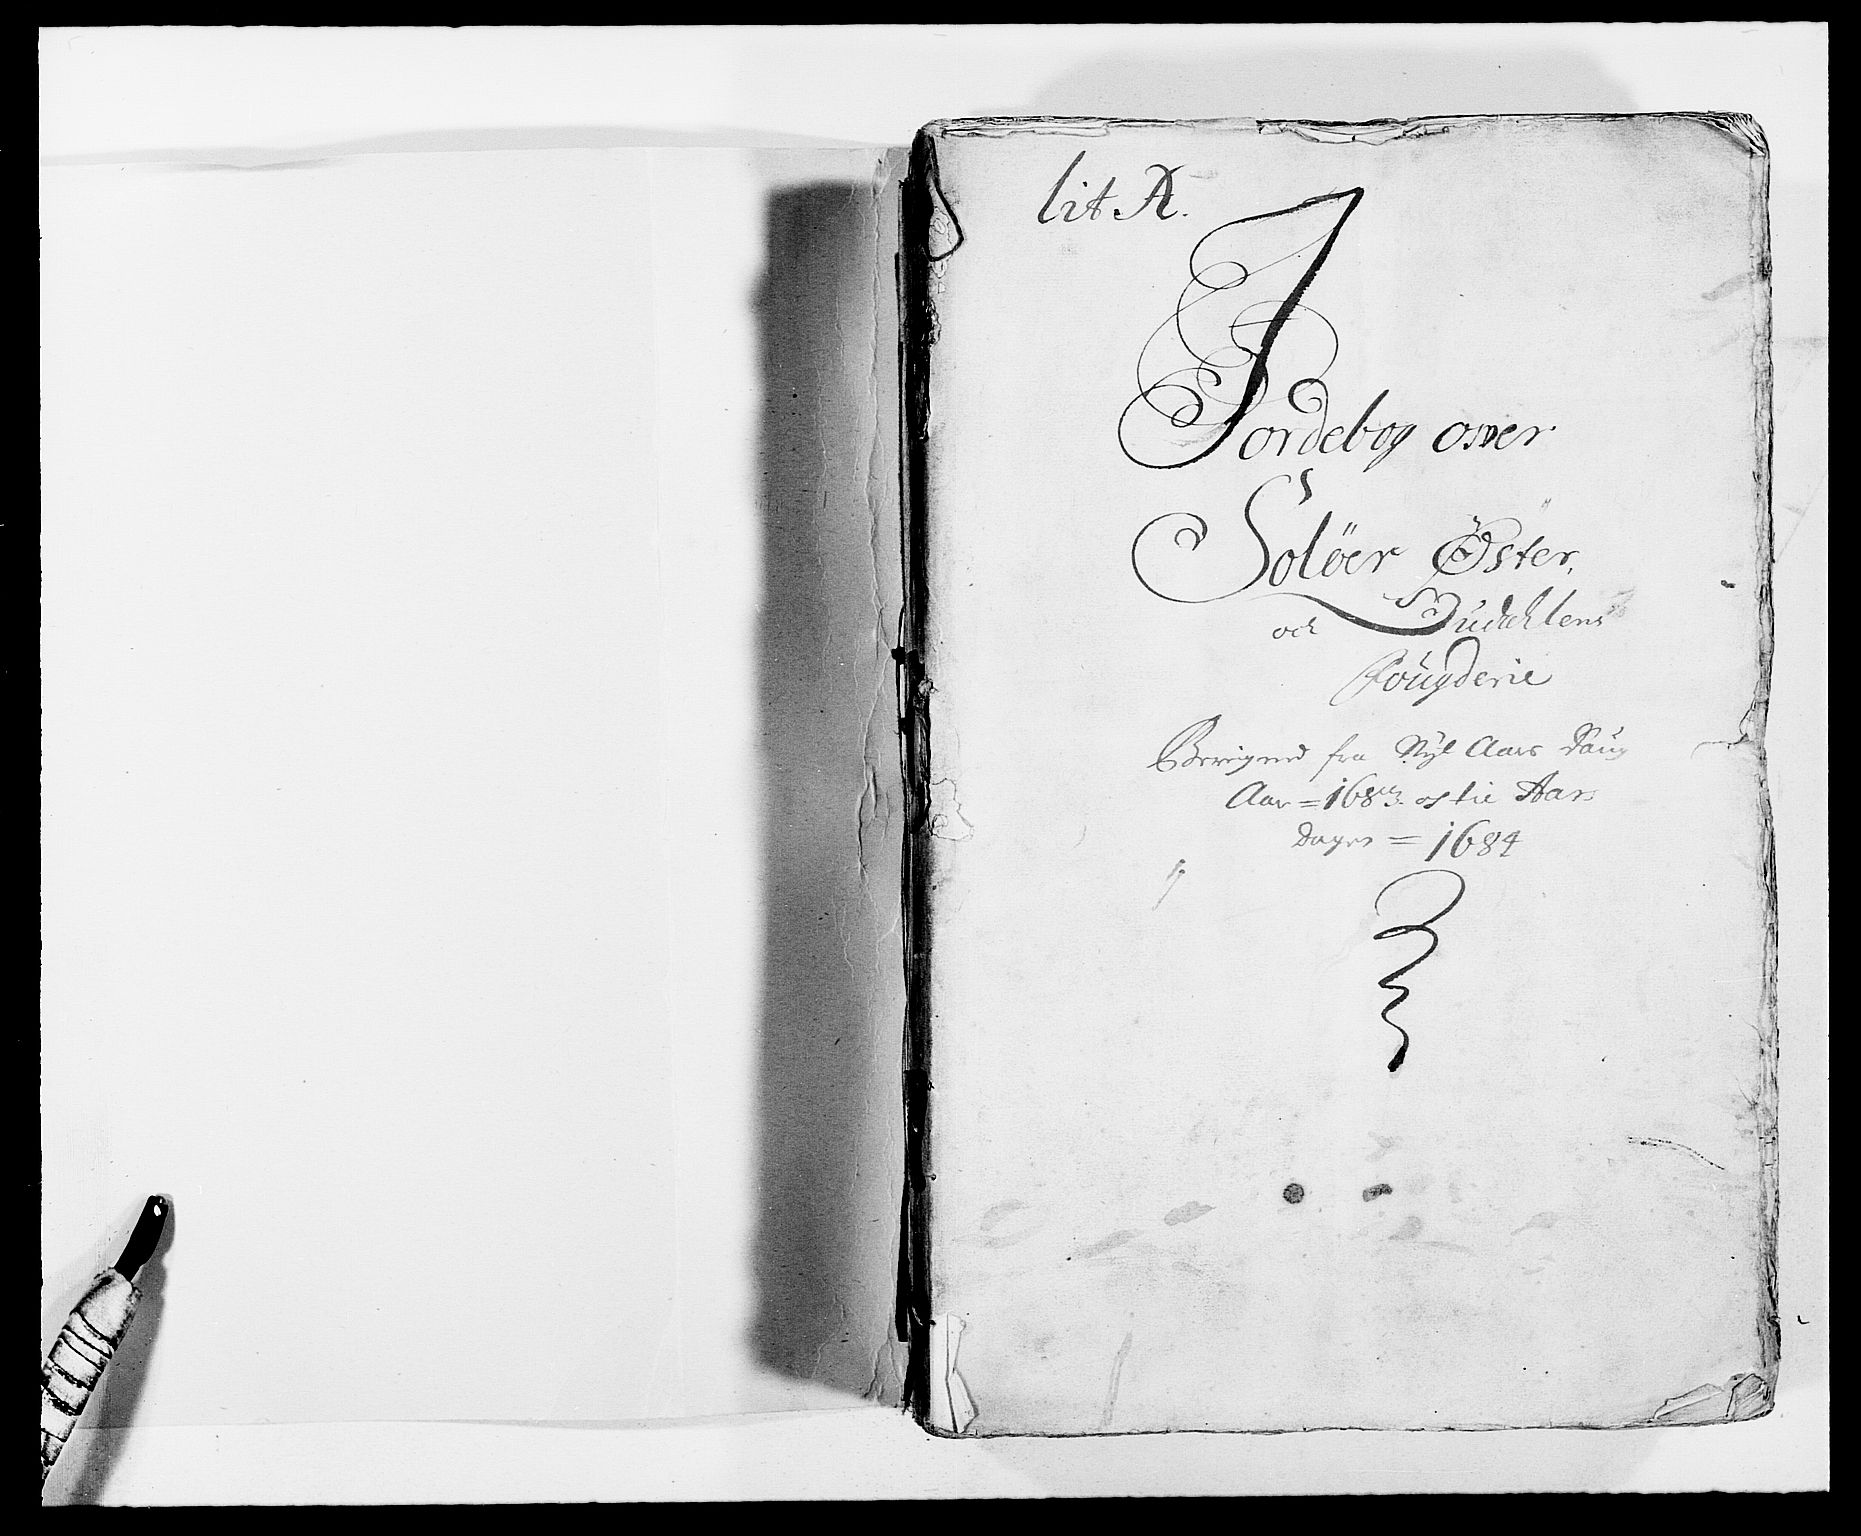 lit A.
Jordebog over
Solöer Öster,
och Dudahlens
Fougderie
Beregned fra Nyt Aars Daug
Aar = 1683. og til Aars
Dagen = 1684